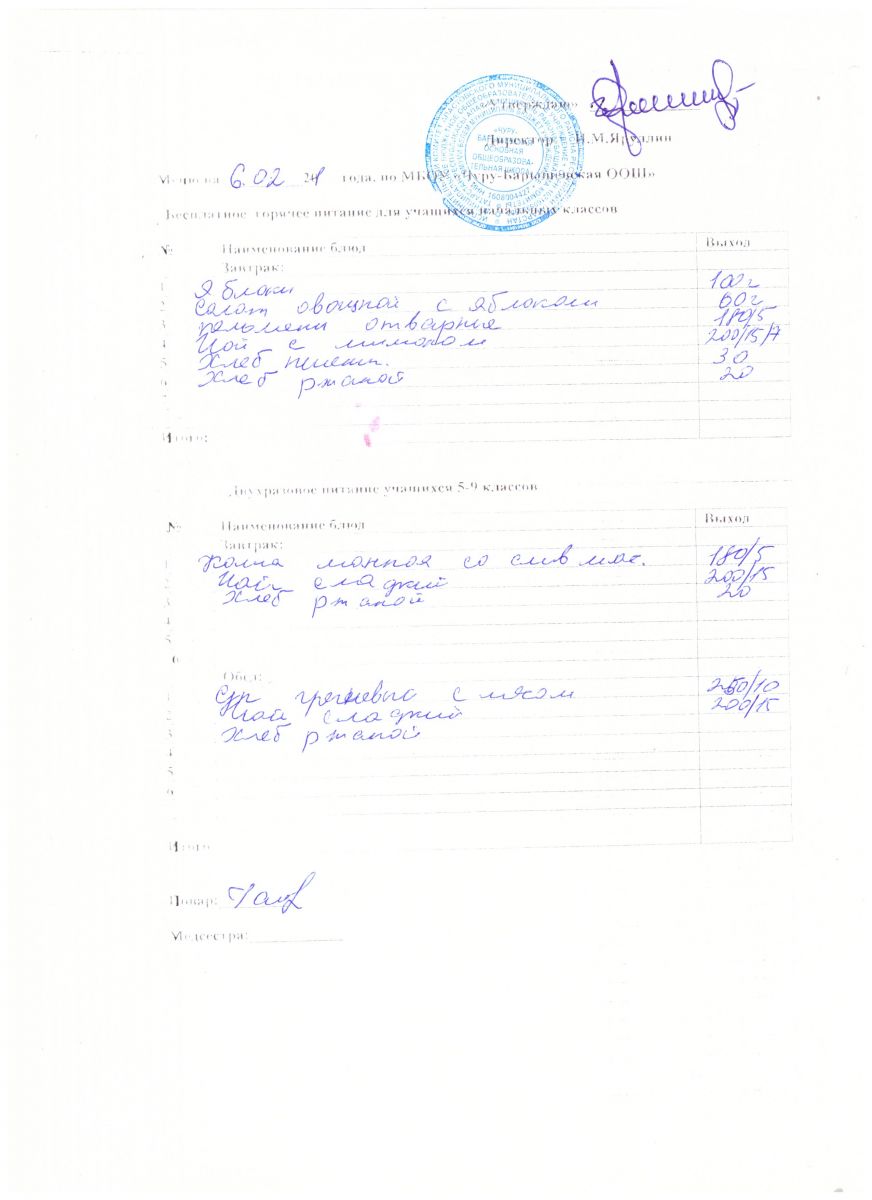 «Утверждаю»
Директор Н.М.Яруллин
Меню на 6.02 24 года. по МБОУ «Чуру-Барышевская ООШ»
Бесплатное горячее питание для учащихся начальных классов
№ Наименование блюд Выход
Завтрак:
1 Яблоки 100г
2 Салат овощной с яблоком 60г
3 пельмени отварные 180/5
4 Чай с лимоном 200/15/7
5 Хлеб пшен. 30
6 Хлеб ржаной 20
7
Итого:
Двухразовое питание учащихся 5-9 классов
№ Наименование блюд Выход
Завтрак:
1 Каша манная со слив мас. 180/5
2 Чай сладкий 200/15
3 Хлеб ржаной 20
4
5
6
Обед:
1 Суп гречневый с мясом 250/10
2 Чай сладкий 200/15
3 Хлеб ржаной
4
5
6
Итого
Повар:
Медсестра:
«ЧУРУ-
БАРЫШЕВСКАЯ
ОСНОВНАЯ
ОБЩЕОБРАЗОВА-
ТЕЛЬНАЯ ШКОЛА»